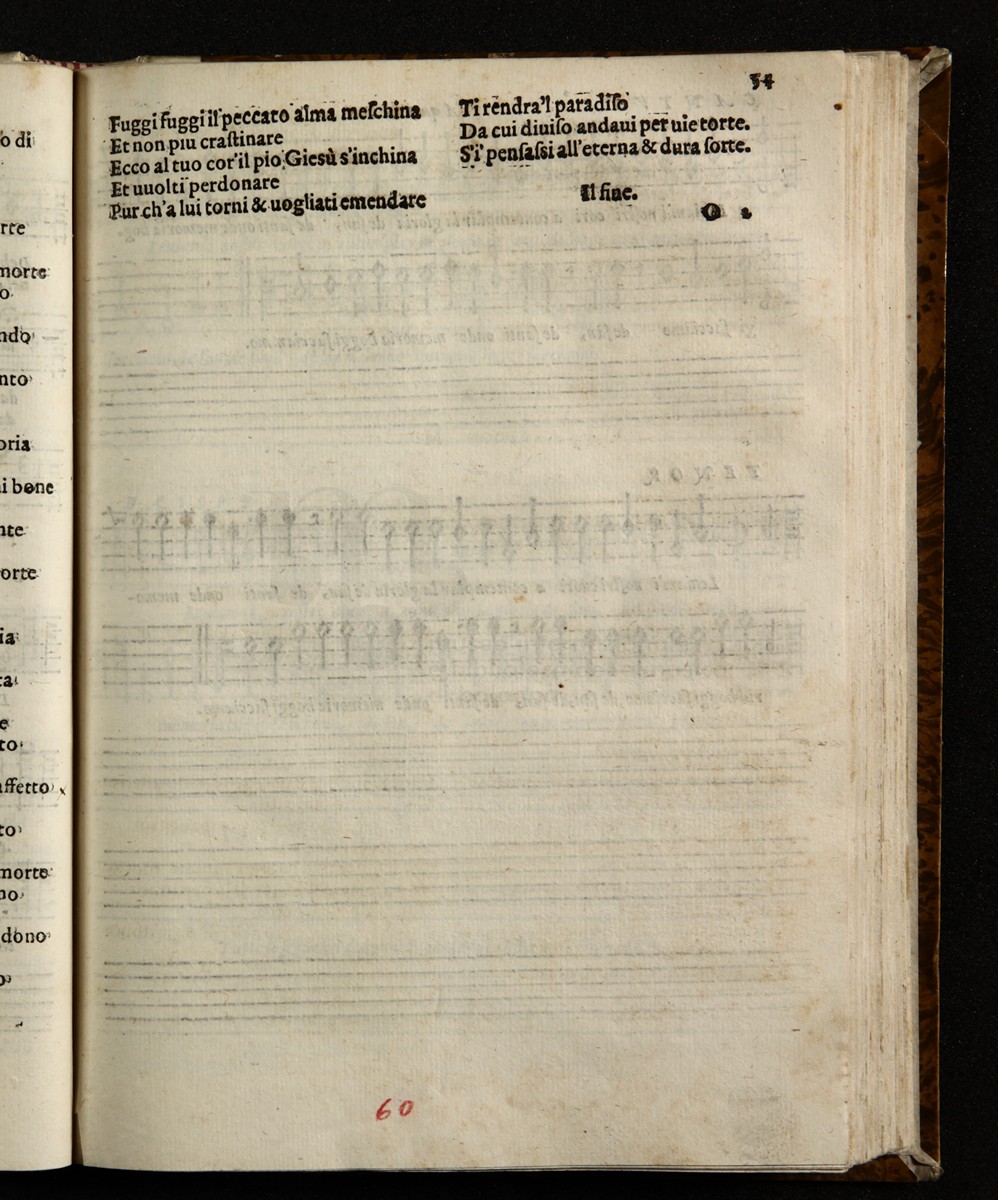 54
Fuggi fuggi il peccato alma meſchina
Et non piu craſtinare
Ecco al tuo cor'il pio Gieſù s'inchina
Et uuolti perdonare
Pur ch'a lui torni & uogliati emendare
Ti rendra'l paradiſo
Da cui diuiſo andaui per uie torte.
S'i' penſaſsi all'eterna & dura ſorte.
Il fine.
O 2
60
o di
rte
morte
o
ndo
nto
oria
i bene
nte
orte
ia
ta
e
to
affetto
to
morte
no
dono
o
TENOR